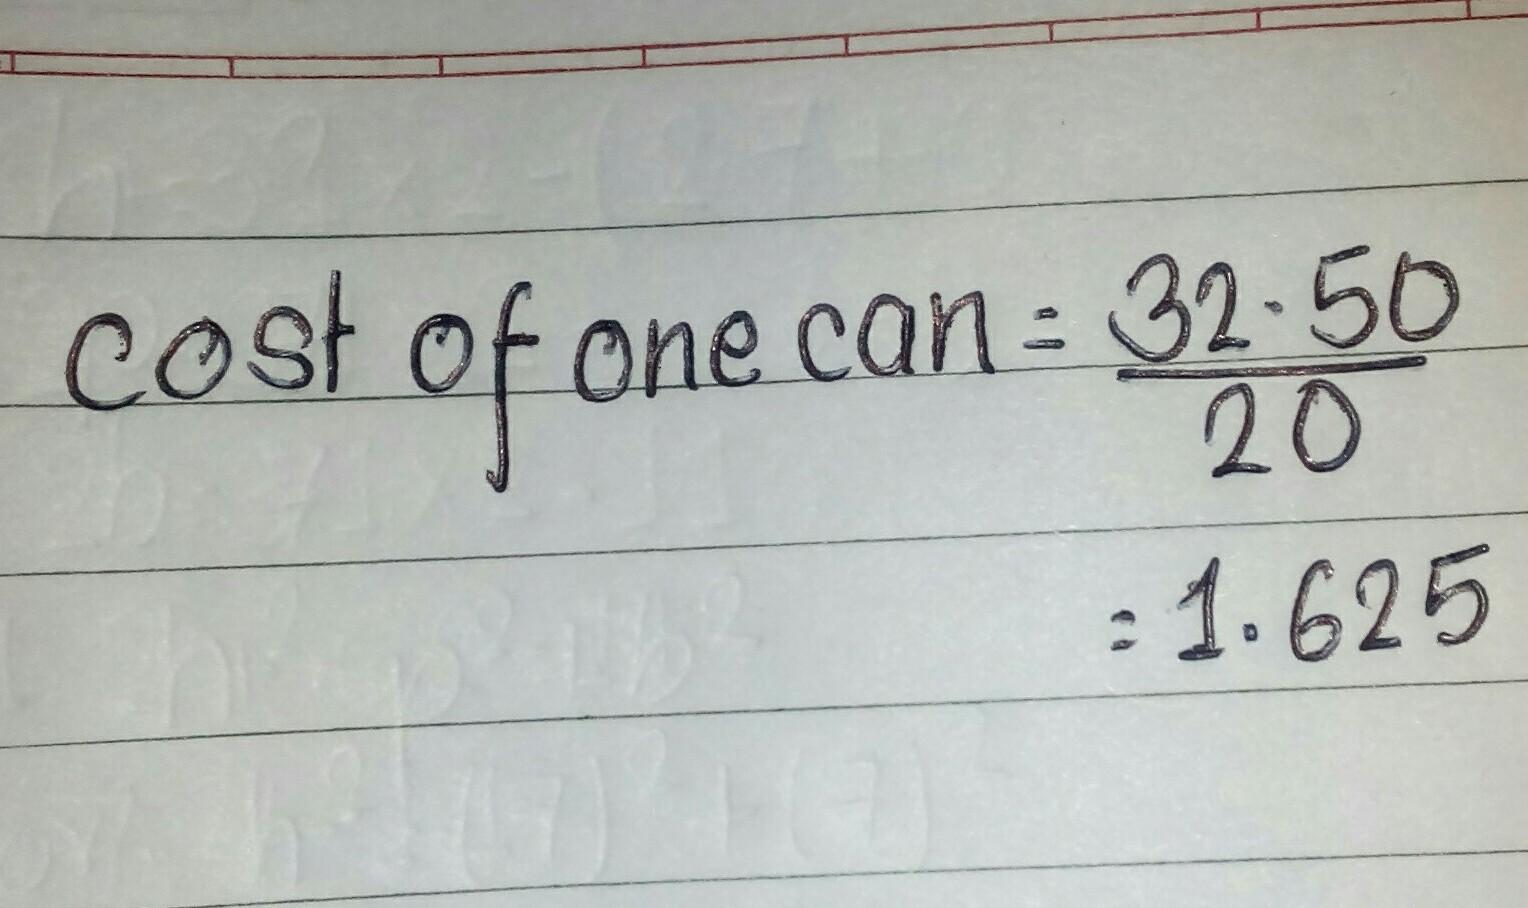 cost of one can = 32.50
20
= 1.625